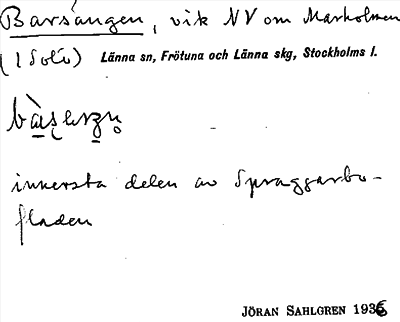 Barsängen, vik NV om Marholmen
(1 Solö) Länna sn, Frötuna och Länna skg, Stockholms l.
innersta delen av Spraggarbo-
fladen
JÖRAN SAHLGREN 1936